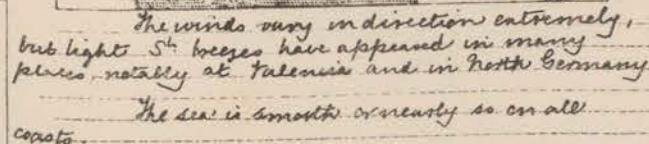 The winds vary in direction extremely,
but light Sly breezes have appeared in many
places, notably at Valencia and in North Germany
The sea is smooth or nearly so on all
coasts.